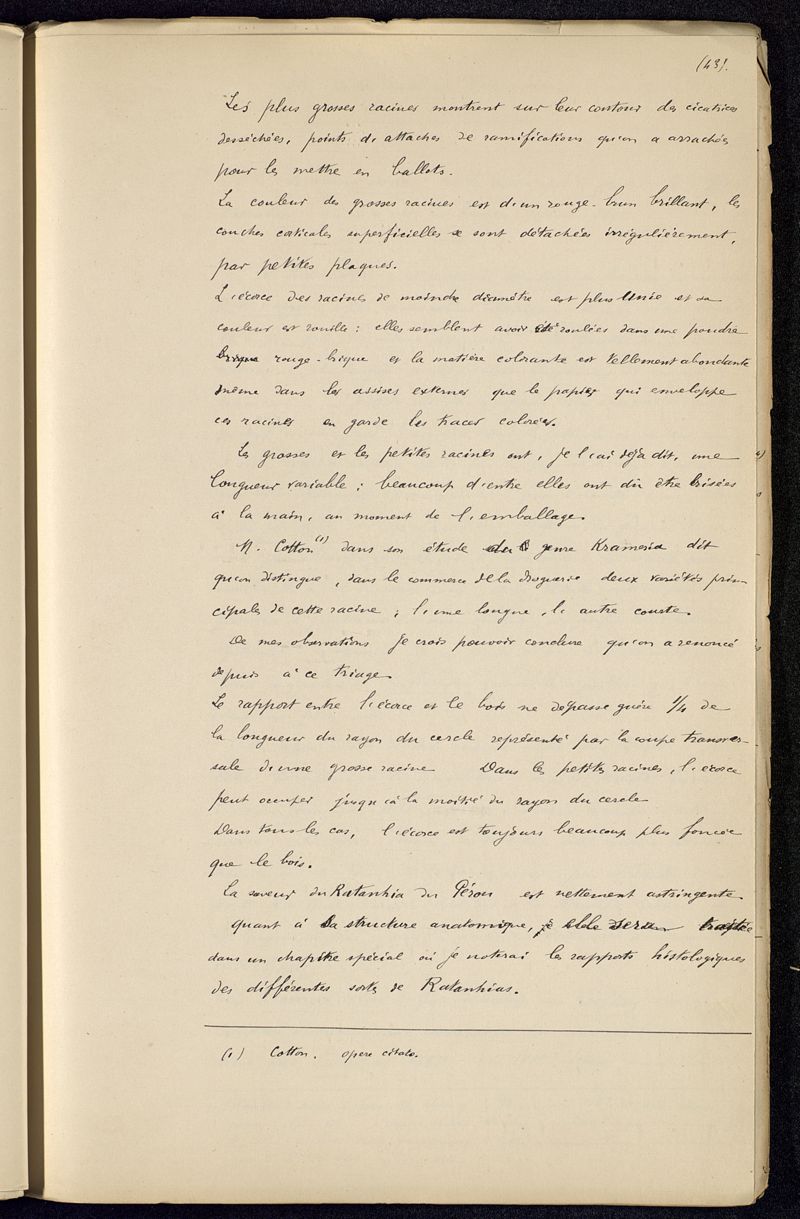 (43).
Les plus grosses racines montrent sur leur contour des cicatrices
desséchées, points d'attaches de ramifications qu'on a arrachées
pour les mettre en ballots.
La couleur des grosses racines est d'un rouge-brun brillant, les
couches corticales superficielles se sont détachées irrégulièrement,
par petites plaques.
L'écorce des racines de moindre diamètre est plus unie et sa
couleur est rouille : elles semblent avoir été roulées dans une poudre
brique rouge-brique et la matière colorante est tellement abondante
même dans les assises externes que le papier qui enveloppe
ces racines en garde les traces colorées.
Les grosses et les petites racines ont, je l'ai déjà dit, une
longueur variable ; beaucoup d'entre elles ont dû être brisées
à la main, au moment de l'emballage.
M. Cotton (1) dans son étude du genre Krameria dit
qu'on distingue, dans le commerce de la droguerie deux variétés prin-
cipales de cette racine ; l'une longue, l'autre courte.
De mes observations je crois pouvoir conclure qu'on a renoncé
depuis à ce triage.
Le rapport entre l'écorce et le bois ne dépasse guère 1/4 de
la longueur du rayon du cercle représenté par la coupe transver-
sale d'une grosse racine. Dans les petites racines, l'écorce
peut occuper jusqu'à la moitié du rayon du cercle.
Dans tous les cas, l'écorce est toujours beaucoup plus foncée
que le bois.
La saveur du Ratanhia du Pérou est nettement astringente.
Quant à sa structure anatomique, elle sera traitée
dans un chapitre spécial où je noterai les rapports histologiques
des différentes sortes de Ratanhias.
(1) Cotton. opere citato.